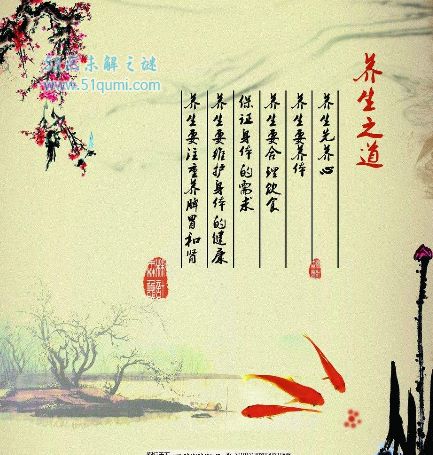 养生之道
养生先养心
养生要养体
养生要合理饮食
保证身体的需求
养生要维护身体的健康
养生要注重养脾胃和肾
51区未解之谜
www.51qumi.com